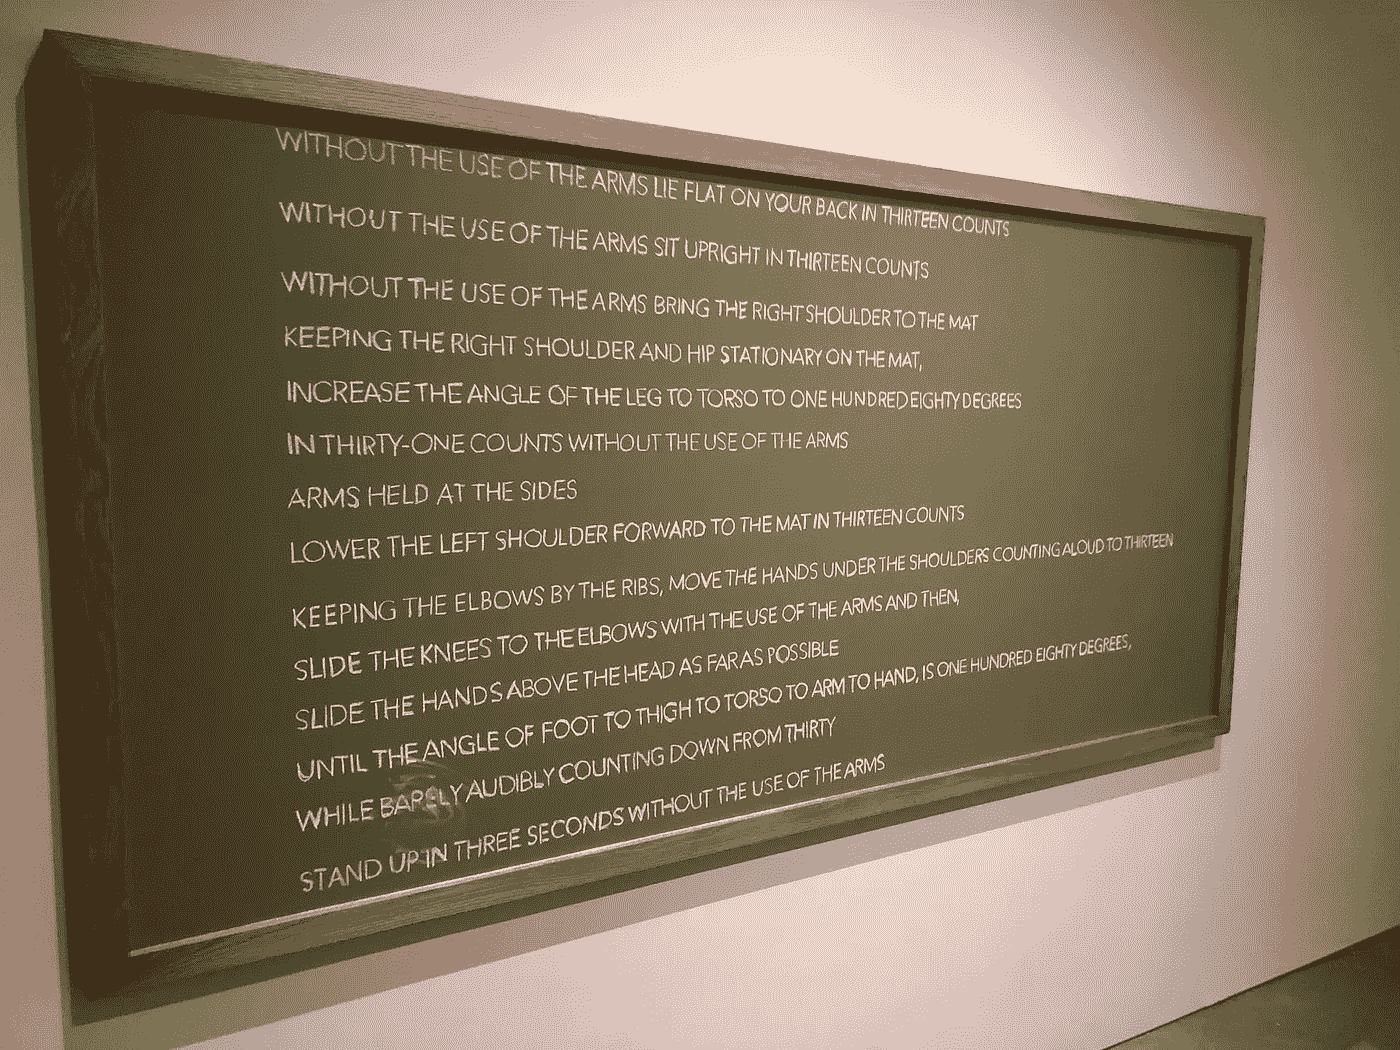 WITHOUT THE USE OF THE ARMS LIE FLAT ON YOUR BACK IN THIRTEEN COUNTS
WITHOUT THE USE OF THE ARMS SIT UPRIGHT IN THIRTEEN COUNTS
WITHOUT THE USE OF THE ARMS BRING THE RIGHT SHOULDER TO THE MAT
KEEPING THE RIGHT SHOULDER AND HIP STATIONARY ON THE MAT,
INCREASE THE ANGLE OF THE LEG TO TORSO TO ONE HUNDRED EIGHTY DEGREES
IN THIRTY-ONE COUNTS WITHOUT THE USE OF THE ARMS
ARMS HELD AT THE SIDES
LOWER THE LEFT SHOULDER FORWARD TO THE MAT IN THIRTEEN COUNTS
KEEPING THE ELBOWS BY THE RIBS, MOVE THE HANDS UNDER THE SHOULDERS COUNTING ALOUD TO THIRTEEN
SLIDE THE KNEES TO THE ELBOWS WITH THE USE OF THE ARMS AND THEN,
SLIDE THE HANDS ABOVE THE HEAD AS FAR AS POSSIBLE
UNTIL THE ANGLE OF FOOT TO THIGH TO TORSO TO ARM TO HAND, IS ONE HUNDRED EIGHTY DEGREES,
WHILE BARELY AUDIBLY COUNTING DOWN FROM THIRTY
STAND UP IN THREE SECONDS WITHOUT THE USE OF THE ARMS